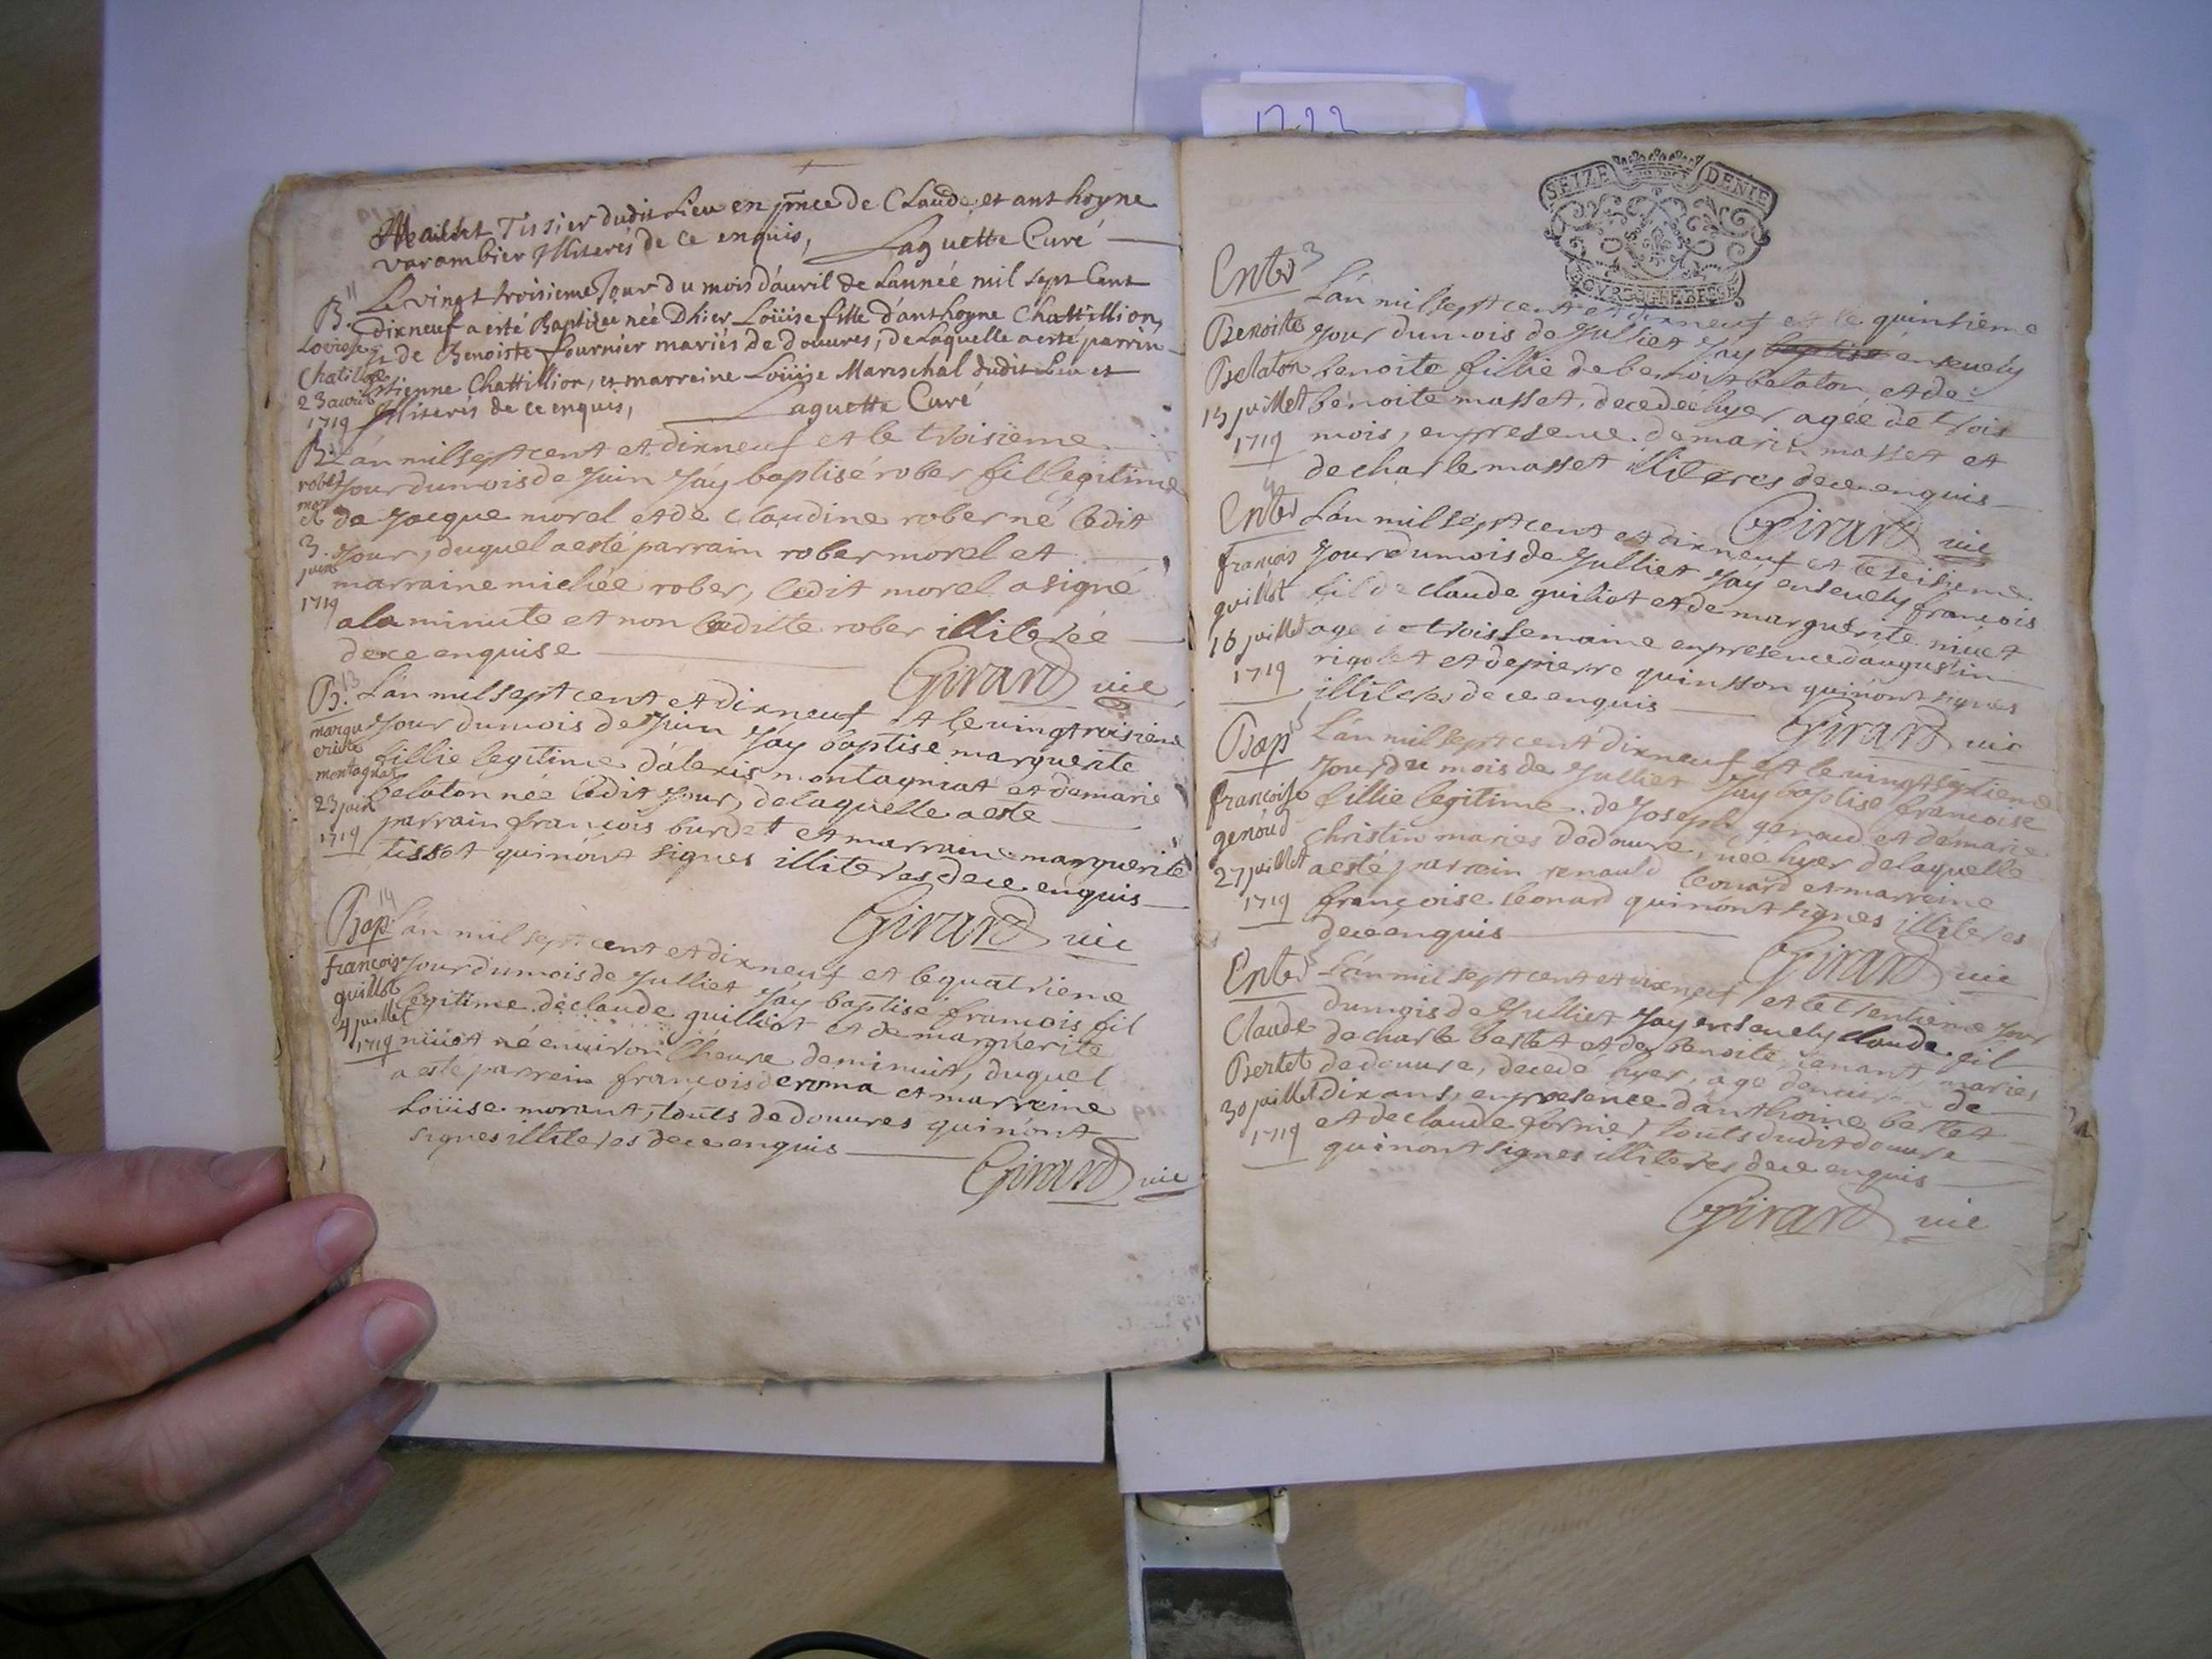 Tissier dudit Lieu en pnce de Claude et anthoyne
varambier Illiterés de ce enquis, Laguette Curé
B. 11
Loüise
Chatillon
23 avril
1719
Le vingt troisieme Jour du mois d'auril de Lannéé mil sept Cent
dixneuf a esté Baptisee néé Dhier Loüise fille d'anthoyne Chattillion,
et de Benoiste fournier mariés de douures, de Laquelle a esté parrin
Estienne Chattillion, et marreine Loüise Mareschal dudit Lieu et
Illiterés de ce enquis, Laguette Curé
B.
rober
morel
3.
juin
1719
L'an mil sept cent et dixneuf et le troisieme
Jour du mois de Juin J'ay baptisé rober fil legitime
de Jacque morel et de Claudine rober né ledit
Jour, duquel a esté parrain rober morel et
marraine michée rober, ledit morel a signé
a la minute et non laditte rober illiterée
de ce enquise
Girard vic
B. 13
margu
erite
montagnat
23 juin
1719
L'an mil sept cent et dixneuf et le vingt roisieme
Jour du mois de Juin J'ay baptisé marguerite
fillie legitime d'alexis montagniat et de marie
belaton née ledit Jour, de laquelle a esté
parrain françois burdet et marraine marguerite
tissot qui nont signés illiteres de ce enquis
Girard vic
Bap. 14
françois
guillot
4 juillet
1719
L'an mil sept cent et dixneuf et le quatrieme
Jour du mois de Julliet J'ay baptisé francois fil
legitime de claude guilliot et de marguerite
niuet né enuiron lheure de minuit, duquel
a esté parrein françois deroma et marreine
Loüise morant, touts de douures qui n'ont
signes illiteres de ce enquis
Girard vic
1722
SEIZE DENIE
Enter 3
Benoite
Belaton
15 juillet
1719
L'an mil sept cent et dixneuf et le quinsieme
Jour du mois de Julliet J'ay baptisé enseuely
benoite fillie de benoist belaton et de
benoite masset, decedée hyer agée de trois
mois, en presence de marin masset et
de charle masset illiteres de ce enquis
Girard vic
Enter 4
françois
guillot
16 juillet
1719
L'an mil sept cent et dixneuf et le seisieme
Jour du mois de Julliet J'ay enseuely francois
fil de claude guiliot et de marguerite niuet
age de trois semaine en presence d'augustin
rigolet et de pierre quinsson qui n'ont signes
illiteres de ce enquis
Girard vic
Bap 15
françoise
genoud
27 juillet
1719
L'an mil sept cent dixneuf et le vingt septieme
Jour du mois de Julliet J'ay baptisé francoise
fillie legitime de Joseph genoud et de marie
christin mariés de douure, née hyer de laquelle
a esté parrein renauld leonard et marreine
françoise leonard qui n'ont signes illiteres
de ce enquis
Girard vic
Enter 5
Claude
Bertet
30 juillet
1719
L'an mil sept cent et dixneuf et le trentieme Jour
du mois de Julliet J'ay enseuely claude fil
de charle bertet et de benoite tenant, mariés
de douure, decedé hyer, age denuiron de
dix ans, en presence d'anthoine bertet
et de claude fornier touts dudit douure
qui n'ont signes illiteres de ce enquis
Girard vic